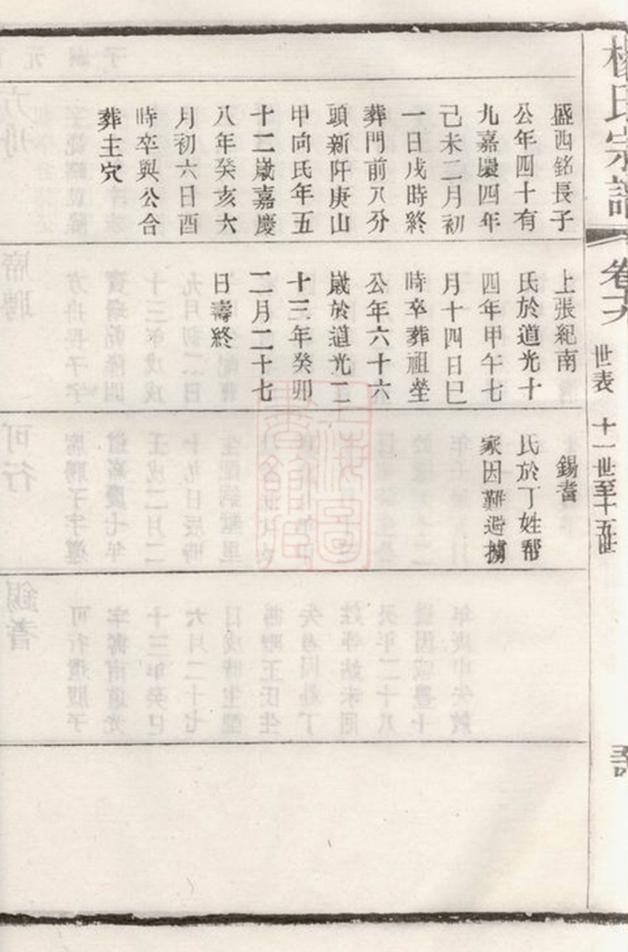 楊氏宗譜
卷十六
世表
十一世至十五世
盛西銘長子
公年四十有
九嘉慶四年
己未二月初
一日戌時終
葬門前八分
頭新阡庚山
甲向氏年五
十二歲嘉慶
八年癸亥六
月初六日酉
時卒與公合
葬主穴
上張紀南
氏於道光十
四年甲午七
月十四日巳
時卒葬祖塋
公年六十六
歲於道光二
十三年癸卯
二月二十七
日壽終
錫耆
氏於丁姓幫
家因難逃擄